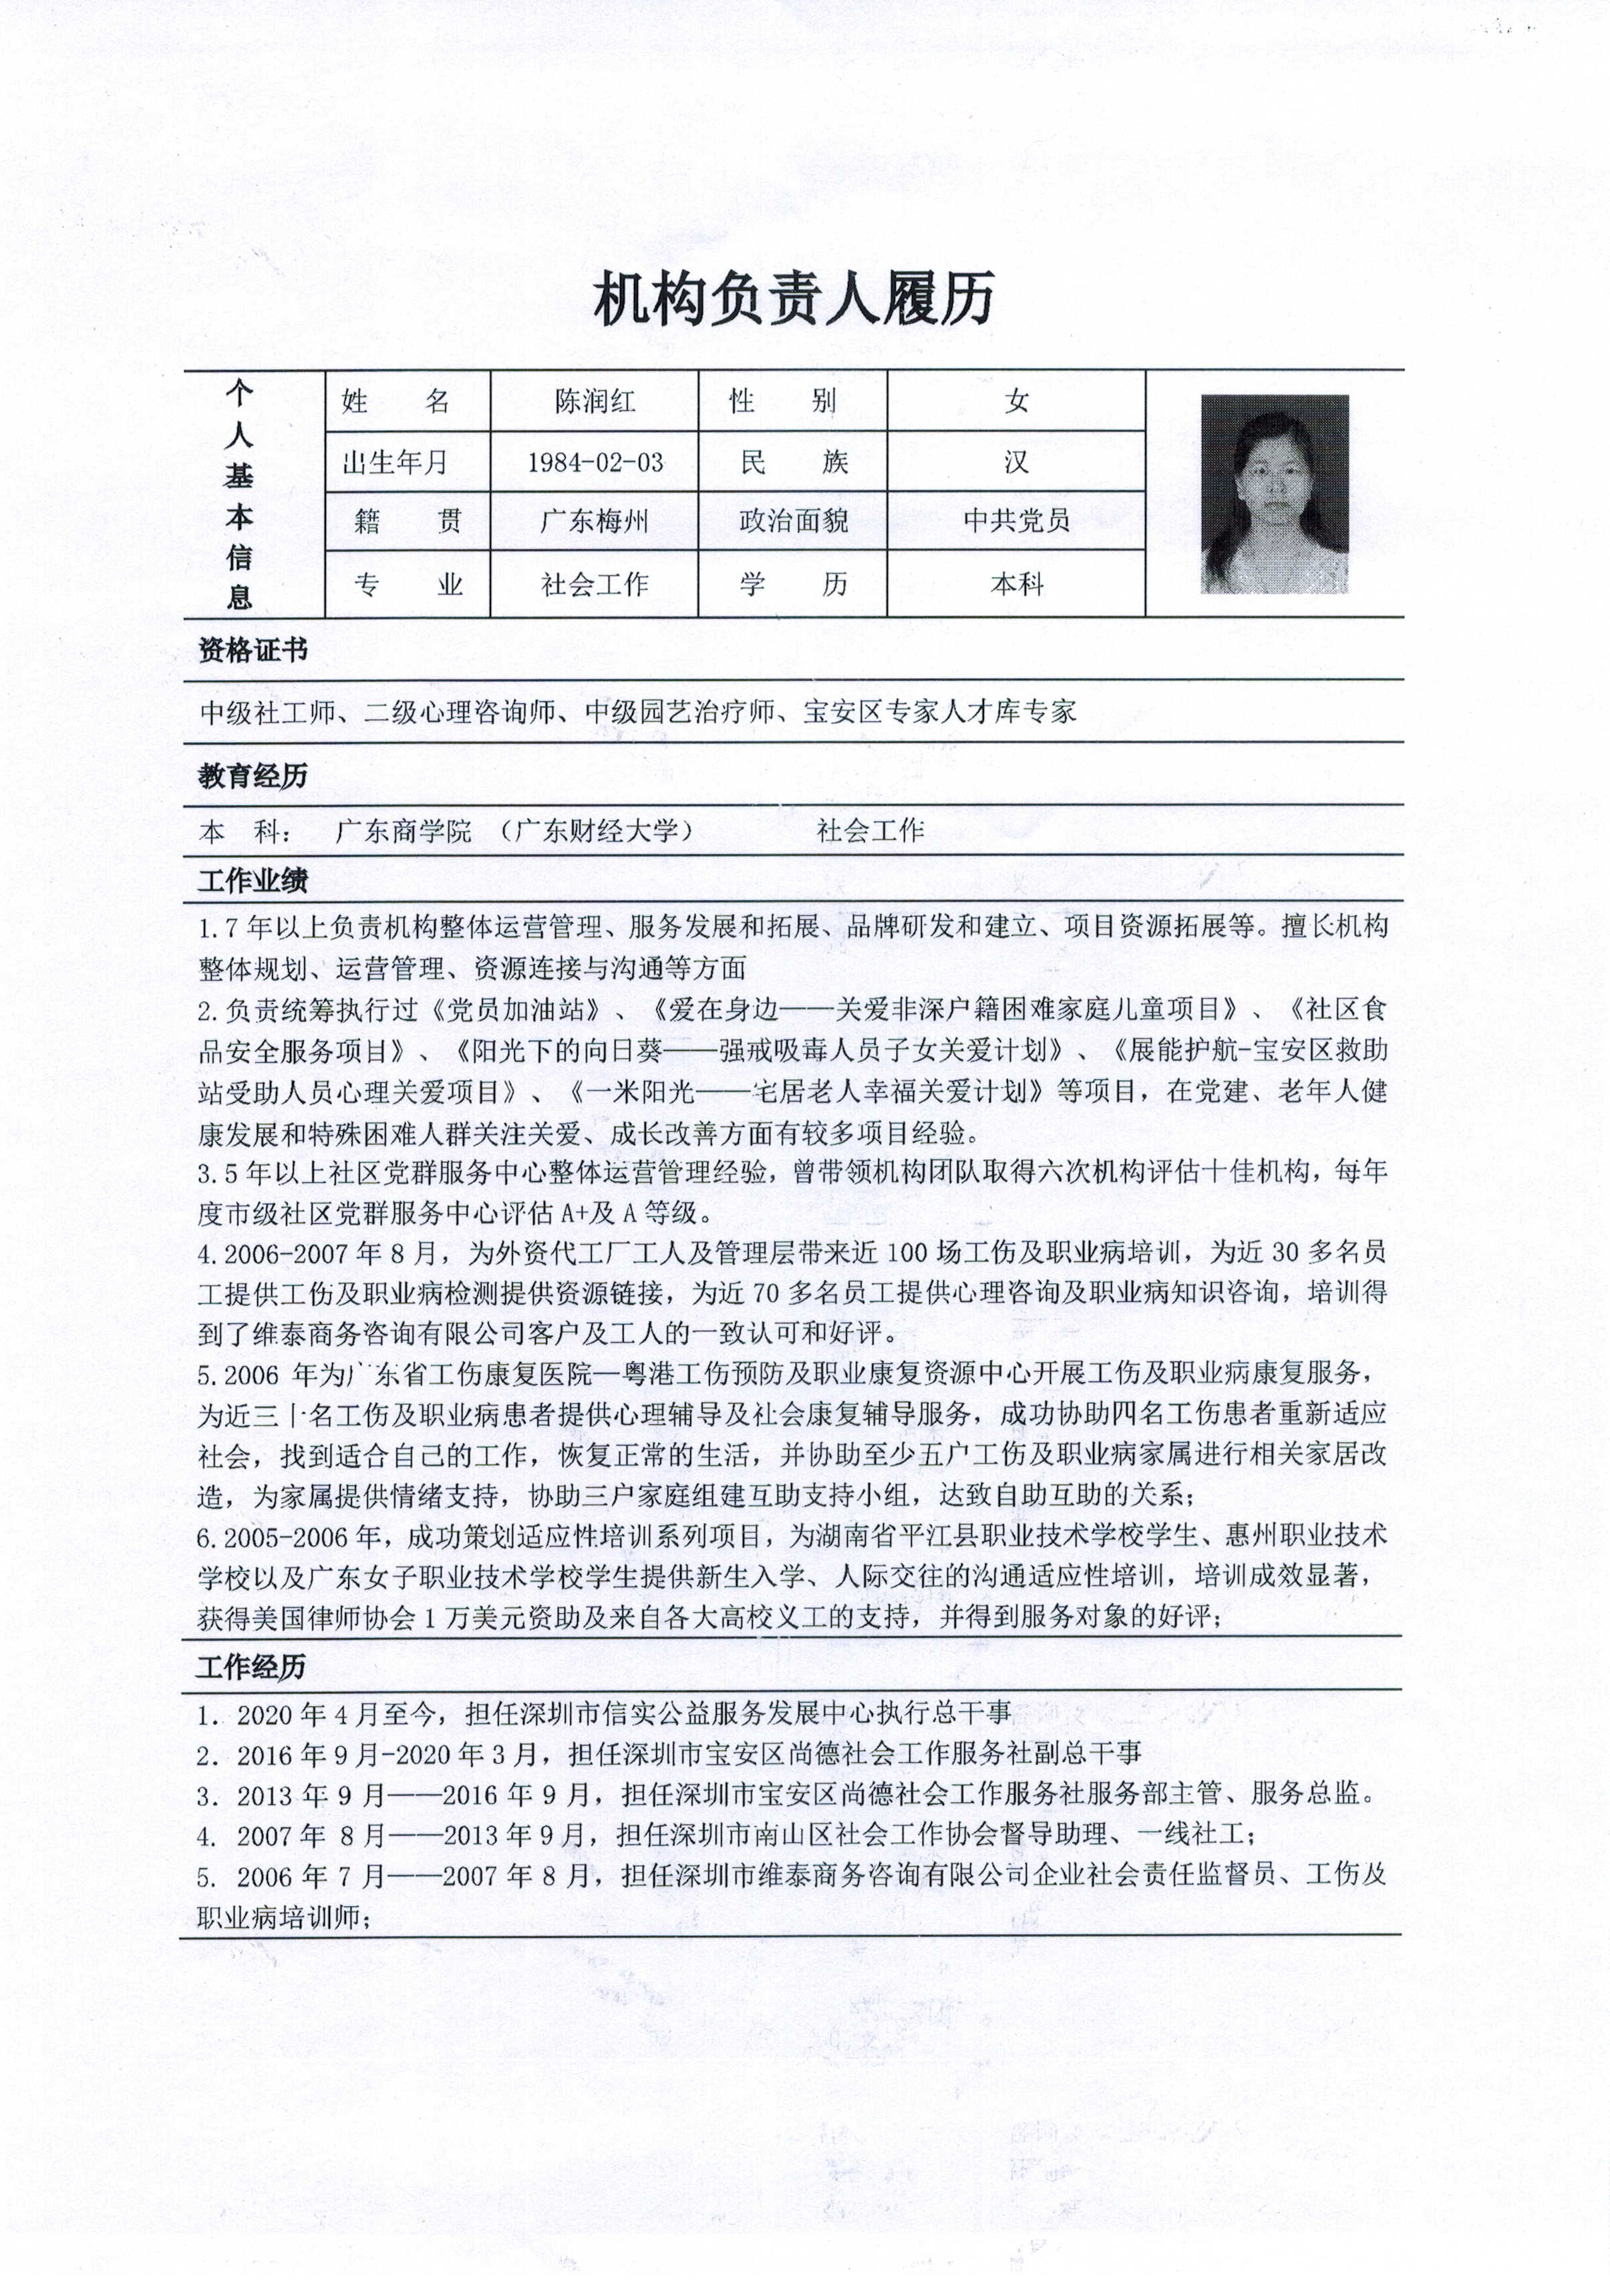 机构负责人履历
个人基本信息
姓 名 陈润红 性 别 女
出生年月 1984-02-03 民 族 汉
籍 贯 广东梅州 政治面貌 中共党员
专 业 社会工作 学 历 本科
资格证书
中级社工师、二级心理咨询师、中级园艺治疗师、宝安区专家人才库专家
教育经历
本 科： 广东商学院 （广东财经大学） 社会工作
工作业绩
1.7 年以上负责机构整体运营管理、服务发展和拓展、品牌研发和建立、项目资源拓展等。擅长机构
整体规划、运营管理、资源连接与沟通等方面
2.负责统筹执行过《党员加油站》、《爱在身边——关爱非深户籍困难家庭儿童项目》、《社区食
品安全服务项目》、《阳光下的向日葵——强戒吸毒人员子女关爱计划》、《展能护航-宝安区救助
站受助人员心理关爱项目》、《一米阳光——宅居老人幸福关爱计划》等项目，在党建、老年人健
康发展和特殊困难人群关注关爱、成长改善方面有较多项目经验。
3.5 年以上社区党群服务中心整体运营管理经验，曾带领机构团队取得六次机构评估十佳机构，每年
度市级社区党群服务中心评估 A+及 A 等级。
4.2006-2007 年 8 月，为外资代工厂工人及管理层带来近 100 场工伤及职业病培训，为近 30 多名员
工提供工伤及职业病检测提供资源链接，为近 70 多名员工提供心理咨询及职业病知识咨询，培训得
到了维泰商务咨询有限公司客户及工人的一致认可和好评。
5.2006 年为广东省工伤康复医院—粤港工伤预防及职业康复资源中心开展工伤及职业病康复服务，
为近三十名工伤及职业病患者提供心理辅导及社会康复辅导服务，成功协助四名工伤患者重新适应
社会，找到适合自己的工作，恢复正常的生活，并协助至少五户工伤及职业病家属进行相关家居改
造，为家属提供情绪支持，协助三户家庭组建互助支持小组，达致自助互助的关系；
6.2005-2006 年，成功策划适应性培训系列项目，为湖南省平江县职业技术学校学生、惠州职业技术
学校以及广东女子职业技术学校学生提供新生入学、人际交往的沟通适应性培训，培训成效显著，
获得美国律师协会 1 万美元资助及来自各大高校义工的支持，并得到服务对象的好评；
工作经历
1. 2020 年 4 月至今，担任深圳市信实公益服务发展中心执行总干事
2. 2016 年 9 月-2020 年 3 月，担任深圳市宝安区尚德社会工作服务社副总干事
3. 2013 年 9 月——2016 年 9 月，担任深圳市宝安区尚德社会工作服务社服务部主管、服务总监。
4. 2007 年 8 月——2013 年 9 月，担任深圳市南山区社会工作协会督导助理、一线社工；
5. 2006 年 7 月——2007 年 8 月，担任深圳市维泰商务咨询有限公司企业社会责任监督员、工伤及
职业病培训师；